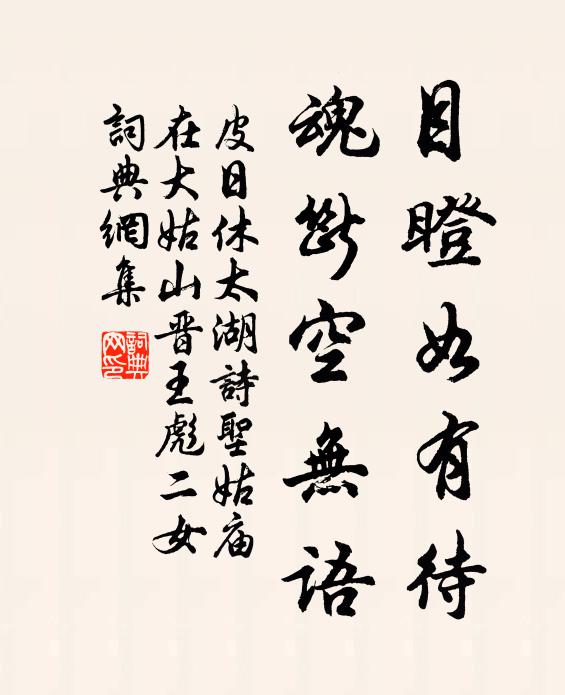 目瞪如有待
魂斷空無語
皮日休太湖詩聖姑庙
在大姑山晋王彪二女
詞典網集
詞典
网印